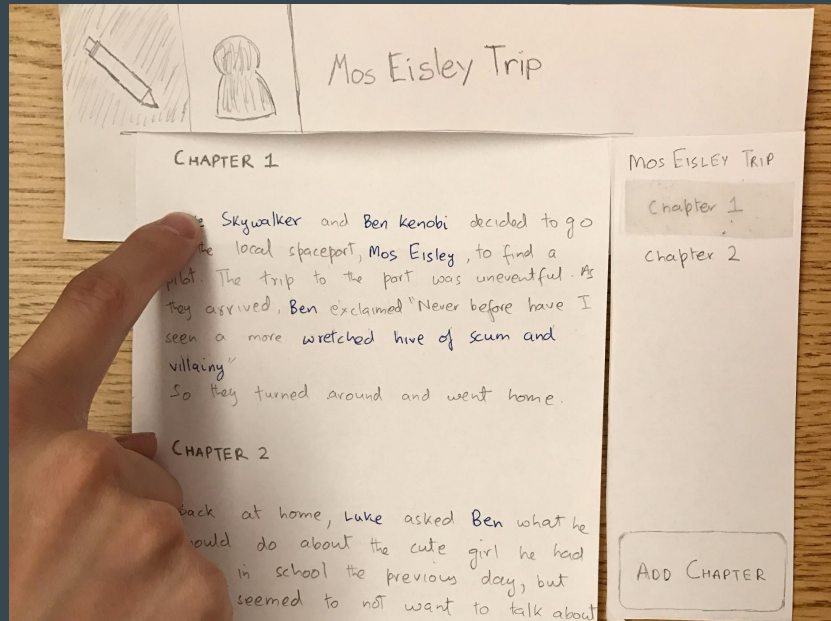 Mos Eisley Trip
CHAPTER 1
Skywalker and Ben Kenobi decided to go
the local spaceport, Mos Eisley, to find a
pilot. The trip to the port was uneventful. As
they arrived, Ben exclaimed "Never before have I
seen a more wretched hive of scum and
villainy"
So they turned around and went home.
CHAPTER 2
Back at home, Luke asked Ben what he
do about the cute girl he had
in school the previous day, but
seemed to not want to talk about
MOS EISLEY TRIP
Chapter 1
Chapter 2
ADD CHAPTER